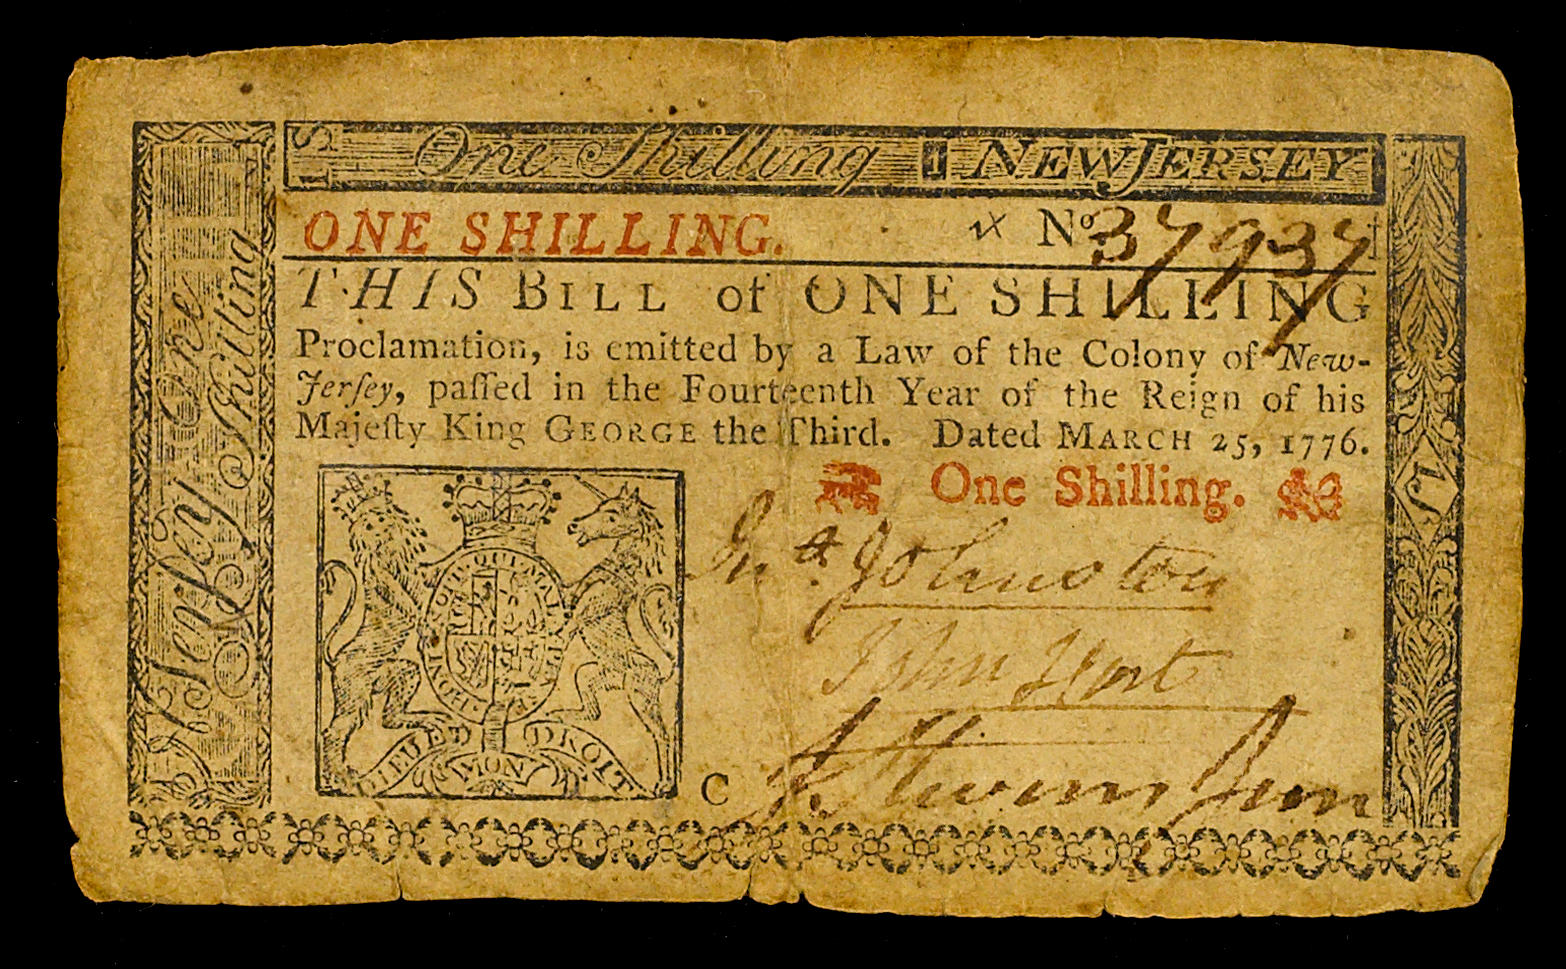 1S One Shilling 1 NEW JERSEY
ONE SHILLING. No. 37937
THIS BILL of ONE SHILLING
Proclamation, is emitted by a Law of the Colony of New-
Jerſey, paſſed in the Fourteenth Year of the Reign of his
Majeſty King GEORGE the Third. Dated MARCH 25, 1776.
One Shilling.
Jn.ª Johnston
John Hart
J. Stevens Jun
C
HONI SOIT QUI MAL Y PENSE
DIEU ET MON DROIT
N. Jerſey One
Shilling
1S